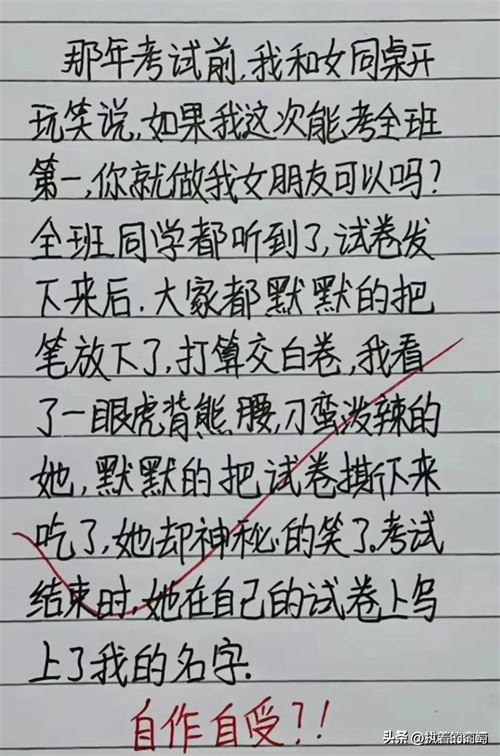 那年考试前,我和女同桌开
玩笑说,如果我这次能考全班
第一,你就做我女朋友可以吗?
全班同学都听到了,试卷发
下来后.大家都默默的把
笔放下了,打算交白卷,我看
了一眼虎背熊腰,刁蛮泼辣的
她,默默的把试卷撕下来
吃了,她却神秘的笑了。考试
结束时,她在自己的试卷上写
上了我的名字.
自作自受?!
头条 @执着的